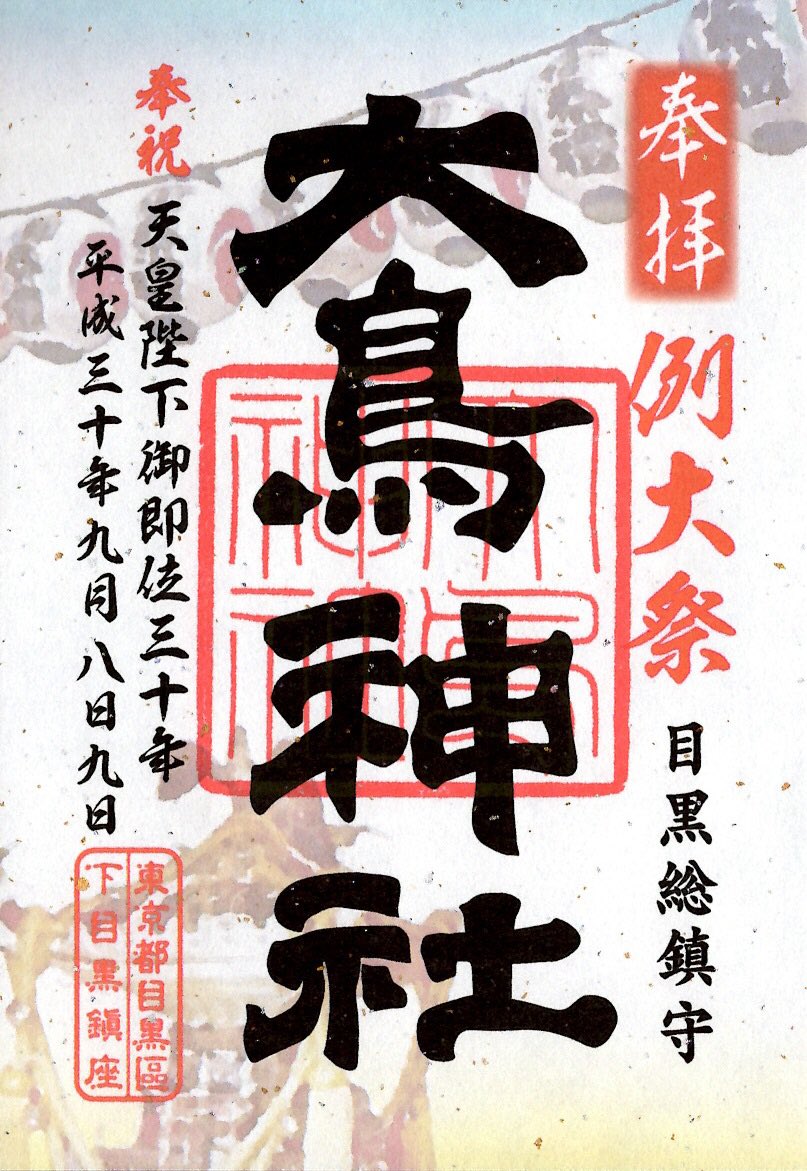 奉拝
例大祭
目黒総鎮守
大鳥神社
大鳥神社
奉祝
天皇陛下御即位三十年
平成三十年九月八日九日
東京都目黒區
下目黒鎮座